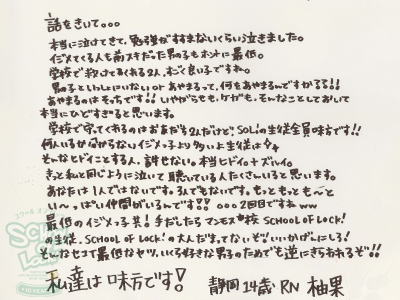 話をきいて。。。
本当に泣けてきて、勉強がすすまないくらい泣きました。
イジメてくる人も前スキだった男の子もホントに最低。
学校で救けてくれる2人、すごく良い子ですね。
男の子といっしょにいない or あやまるって、何もあやまるんですかぁ??!!
あやまるのはそっちです!! いやがらせも、ケガも。そんなことしておいて
本当にひどすぎると思います。
学校で守ってくれるのはおあだち2人だけど、SOL!の生徒全員味方です!!
何人いるか分からないイジメっ子より多いよ生徒は
そんなヒドイことする人、許せない。本当ヒドイ+ズルイ。
きっと私と同じように泣いて聴いている人たくさんいると思います。
あなたは1人ではないです。3人でもないです。もっともっとも〜と
い〜っぱい仲間がいるんです!! 。。。2回目ですねww
最低のイジメっ子共!手だしたらマンモス校 SCHOOL OF LOCK!
の生徒、SCHOOL OF LOCK!の大人だまってないぞ!いいかげんにしろ!
そんなセコくて最低なヤツ、いくら好きな男の子のためでも逆にきらわれるぞ!!
私達は味方です!
静岡 14歳 RN 柚果